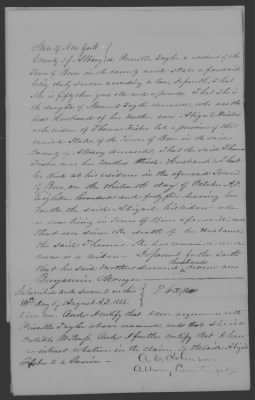 State of New York
County of Albany ss. Priscilla Taylor a resident of the
Town of Bern in the county and state aforesaid
being duly sworn according to law, deposeth, that
She is fifty three years old and upwards. That she is
the daughter of Samuel Taylor deceased, who was the
first Husband of her mother now Abigail Fisher
widow of Thomas Fisher late a pensioner of the
United States of the Town of Bern in the said
County of Albany deceased. That the said Thomas
Fisher was her Mothers third Husband. That
he died at his residence in the aforesaid Town
of Bern, on the thirteenth day of October A.D.
Eighteen hundred and fifty five leaving her
mother the said Abigail, his widow who
is now living in Town of Bern aforesaid; and
that ever since the death of her Husband
the said Thomas She has remained and
now is a widow. Deponent further saith
that her said Mothers second husbands name was
Benjamin
Subscribed and sworn to on this
day of August A.D. 1862.
before me. And I certify that I am acquainted with
Priscilla Taylor above named, and that she is a
credible Witness. And I further certify that I have
no interest whatever in the claim of the said Abigail
Fisher to a Pension
Albany County Judge